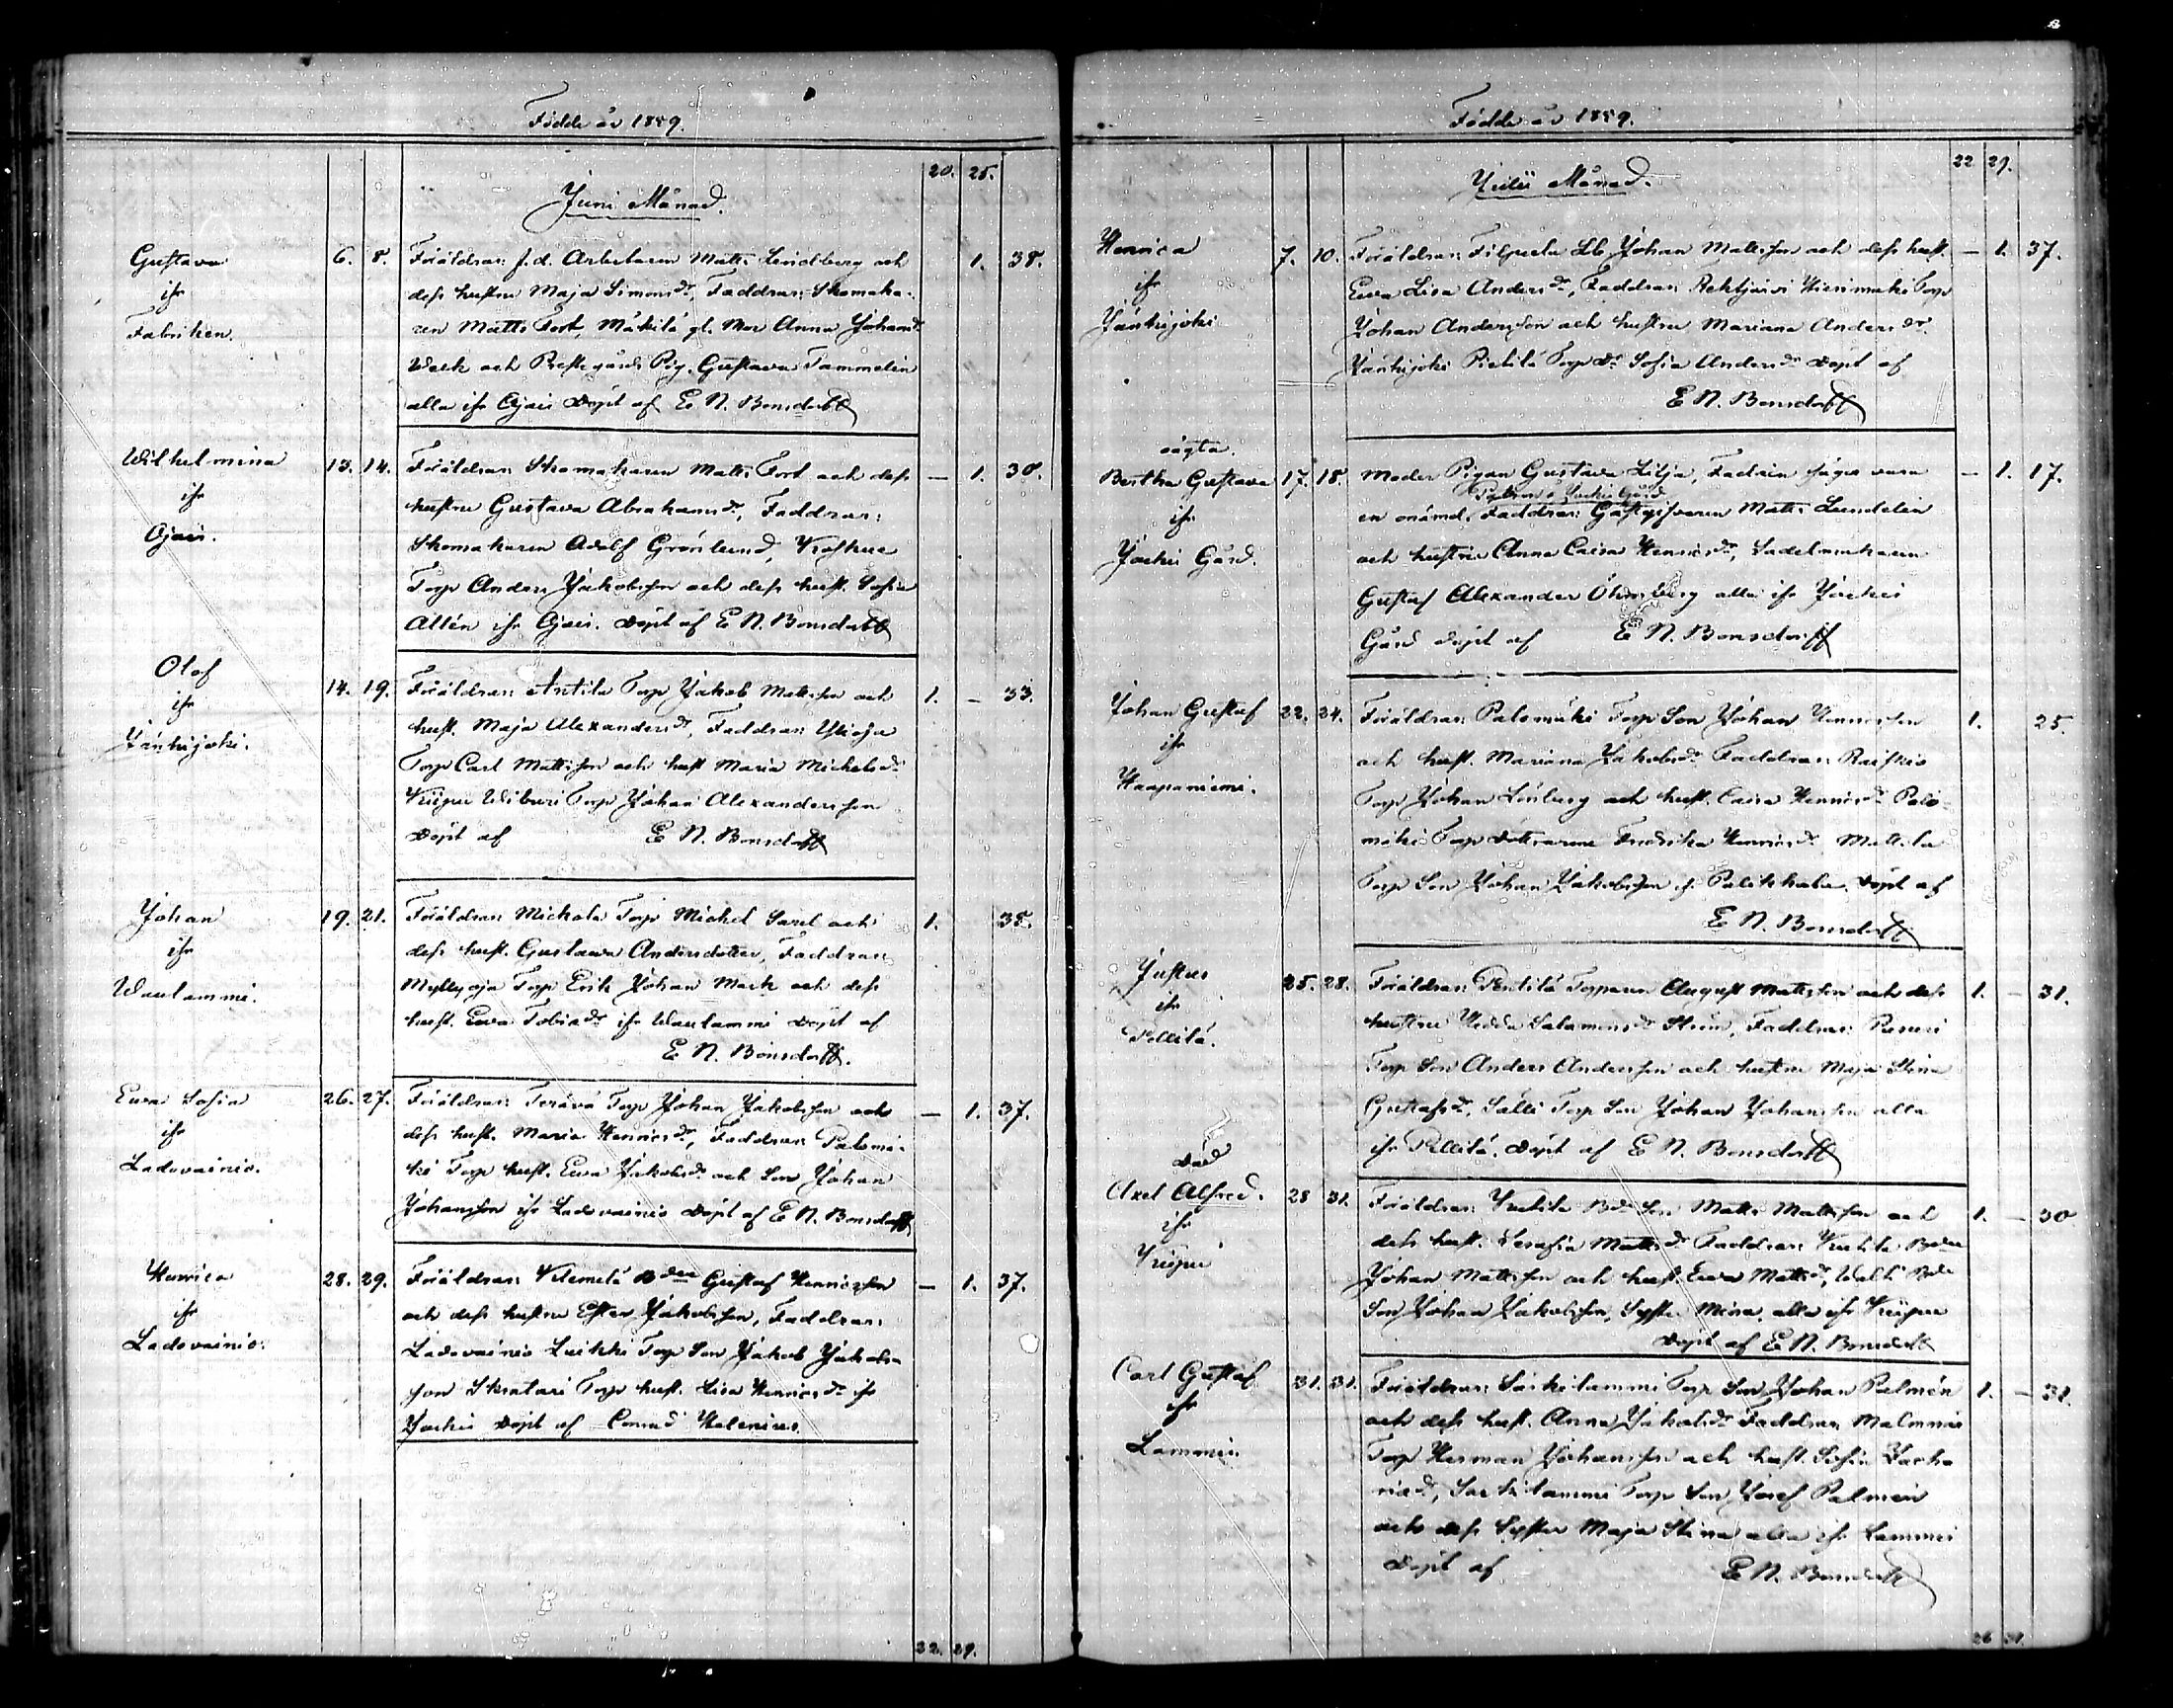 Födde år 1859.
20. 25.
Juni Månad.
Gustava
ifr
Fabriken.
6. 8. Föräldrar: f.d. Arbetaren Matts Lindberg och 1. 38.
dess hustru Maja Simonsdr, Faddrar: Skomaka-
ren Matts Fort, Mäkilä gl. Mor Anna Johansdr
Werk och Prestgårds Pig. Gustava Tammelin
alla ifr Ojais Döpt af E N. Bonsdorff
Wilhelmina
ifr
Ojais.
13. 14. Föräldrar: Skomakaren Matts Fort och dess — 1. 30.
hustru Gustava Abrahamsdr, Faddrar:
Skomakaren Adolf Grönlund,
Torp Anders Jakobsson och dess hust. Sofia
Allén ifr Ojais. Döpt af E N. Bonsdorff
Olof
ifr
Jänhijoki.
14. 19. Föräldrar: Antila Torp Jakob Mattsson och 1. — 33.
hust. Maja Alexandersdr, Faddrar: Ylioja
Torp Carl Mattsson och hust Maria Michelsdr
Kriipu Wiburi Torp Johan Alexandersson
Döpt af E N. Bonsdorff
Johan
ifr
Waulammi.
19. 21. Föräldrar: Mickola Torp Michel Sarel och 1. 38.
dess hust. Gustawa Andersdotter, Faddrar:
Myllyoja Torp Erik Johan Mark och dess
hust. Ewa Tobiasdr ifr Waulammi Döpt af
E N. Bonsdorff.
Ewa Sofia
ifr
Ladovainio.
26. 27. Föräldrar: Terävä Torp Johan Jakobsson och — 1. 37.
dess hust. Maria Henricsdr, Faddrar: Palomä-
ki Torp hust. Ewa Jakobsdr och Son Johan
Johansson ifr Ladovainio Döpt af E N. Bonsdorff
Henrica
ifr
Ladovainio.
28. 29. Föräldrar: Klemelä Bden Gustaf Henricsson — 1. 37.
och dess hustru Ester Jakobsson, Faddrar:
Ladovainio Luikki Torp Son Jakob Jakobs-
son Skratari Torp hust. Lisa Henricsdr ifr
Jockis Döpt af Conrad Helenius.
22. 29.
Födde år 1859.
22 29.
Julii Månad.
Henrica
ifr
Jänhijoki
7. 10. Föräldrar: Filpula Lb Johan Mattsson och dess hust. — 1. 37.
Ewa Lisa Andersdr, Faddrar: Rehtjärvi Hiisimäki Torp
Johan Andersson och hustru Mariana Andersdr.
Jänhijoki Pietilä Torp Dr Sofia Andersdr Döpt af
E N. Bonsdorff
oägta.
Bertha Gustava
ifr
Jockis Gård.
17. 18. Moder Pigan Gustava Lilja, Fadren säges vara — 1. 17.
Pigan i Jockis Gård
en onämd. Faddrar: Gästgifvaren Matts Lundelin
och hustru Anna Caisa Henricsdr, Sadelmakaren
Gustaf Alexander Öhrnberg alla ifr Jockis
Gård döpt af E N. Bonsdorff
Johan Gustaf
ifr
Haapaniemi.
22. 24. Föräldrar: Palomäki Torp Son Johan Henricsson 1. 25.
och hust. Mariana Jakobsdr Faddrar: Raiskio
Torp Johan Lönberg och hust. Caisa Henricsdr Palo-
mäki Torp dottrarne Fredrika Henricsdr Mattila
Torp Son Johan Jakobsson ifr Palikkala. Döpt af
E N. Bonsdorff
Justus
ifr
Pellilä.
25. 28. Föräldrar: Pentilä Torparen August Mattsson och dess 1. — 31.
hustru Hedda Salamonsdr Ström, Faddrar:
Torp Son Anders Andersson och hustru Maja Stina
Gustafsdr, Sälli Torp Son Johan Johansson alla
ifr Pellilä. Döpt af E N. Bonsdorff
Död
Axel Alfred.
ifr
Kriipu
28 31. Föräldrar: Yrttilä Bde Son Matts Mattsson och 1. — 30
dess hust. Serafia Mattsdr Faddrar: Yrttilä Bden
Johan Mattsson och hust. Ewa Mattsdr, Bde
Son Johan Jakobsson, Syster Mina, alla ifr Kriipu
Döpt af E N. Bonsdorff
Carl Gustaf
ifr
Lammi.
31. 31. Föräldrar: Särkilammi Torp Son Johan Palmén 1. — 31.
och dess hust. Anna Jakobsdr Faddrar:
Torp Herman Johansson och hust. Sofia Zacha-
riasdr, Särkilammi Torp Son Josef Palmén
och dess Syster Maja Stina alla ifr Lammi
Döpt af E N. Bonsdorff
26